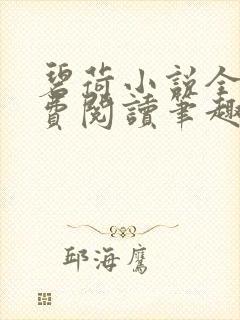 碧荷小說全
費閱讀筆趣
邱海鷹